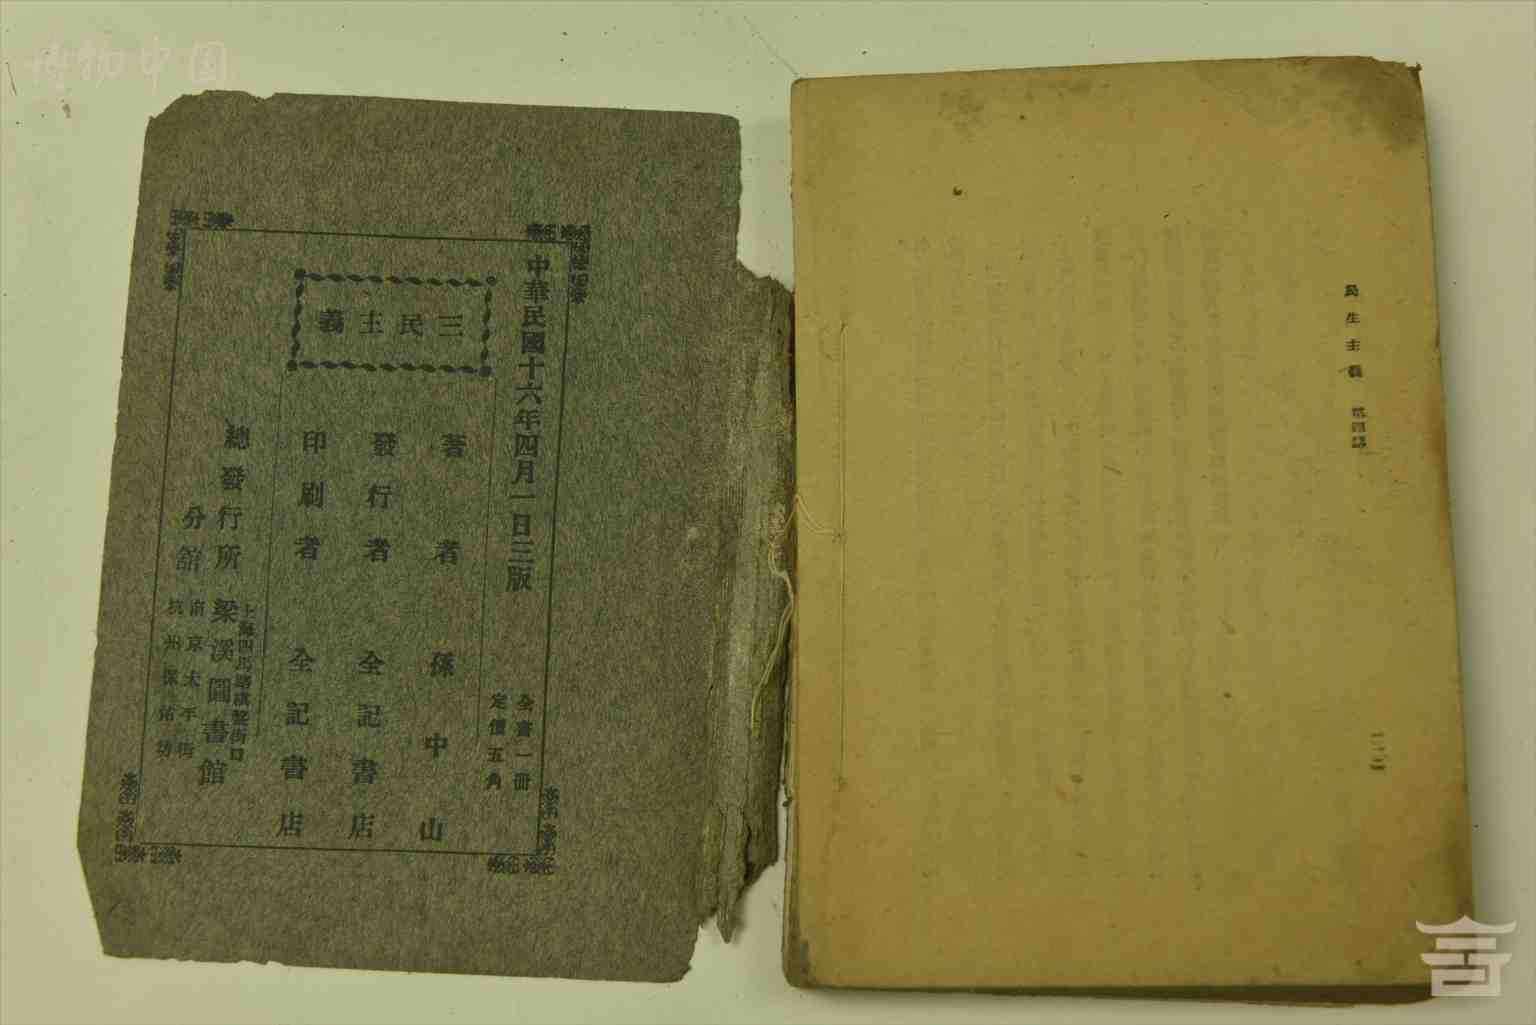 博物中国
中華民國十六年四月一日三版
全書一冊
定價五角
三民主義
著者 孫中山
發行者 全記書店
印刷者 全記書店
總發行所 上海四馬路棋盤街口 梁溪圖書館
分館 南京太平街
杭州保佑坊
民生主義 第四講